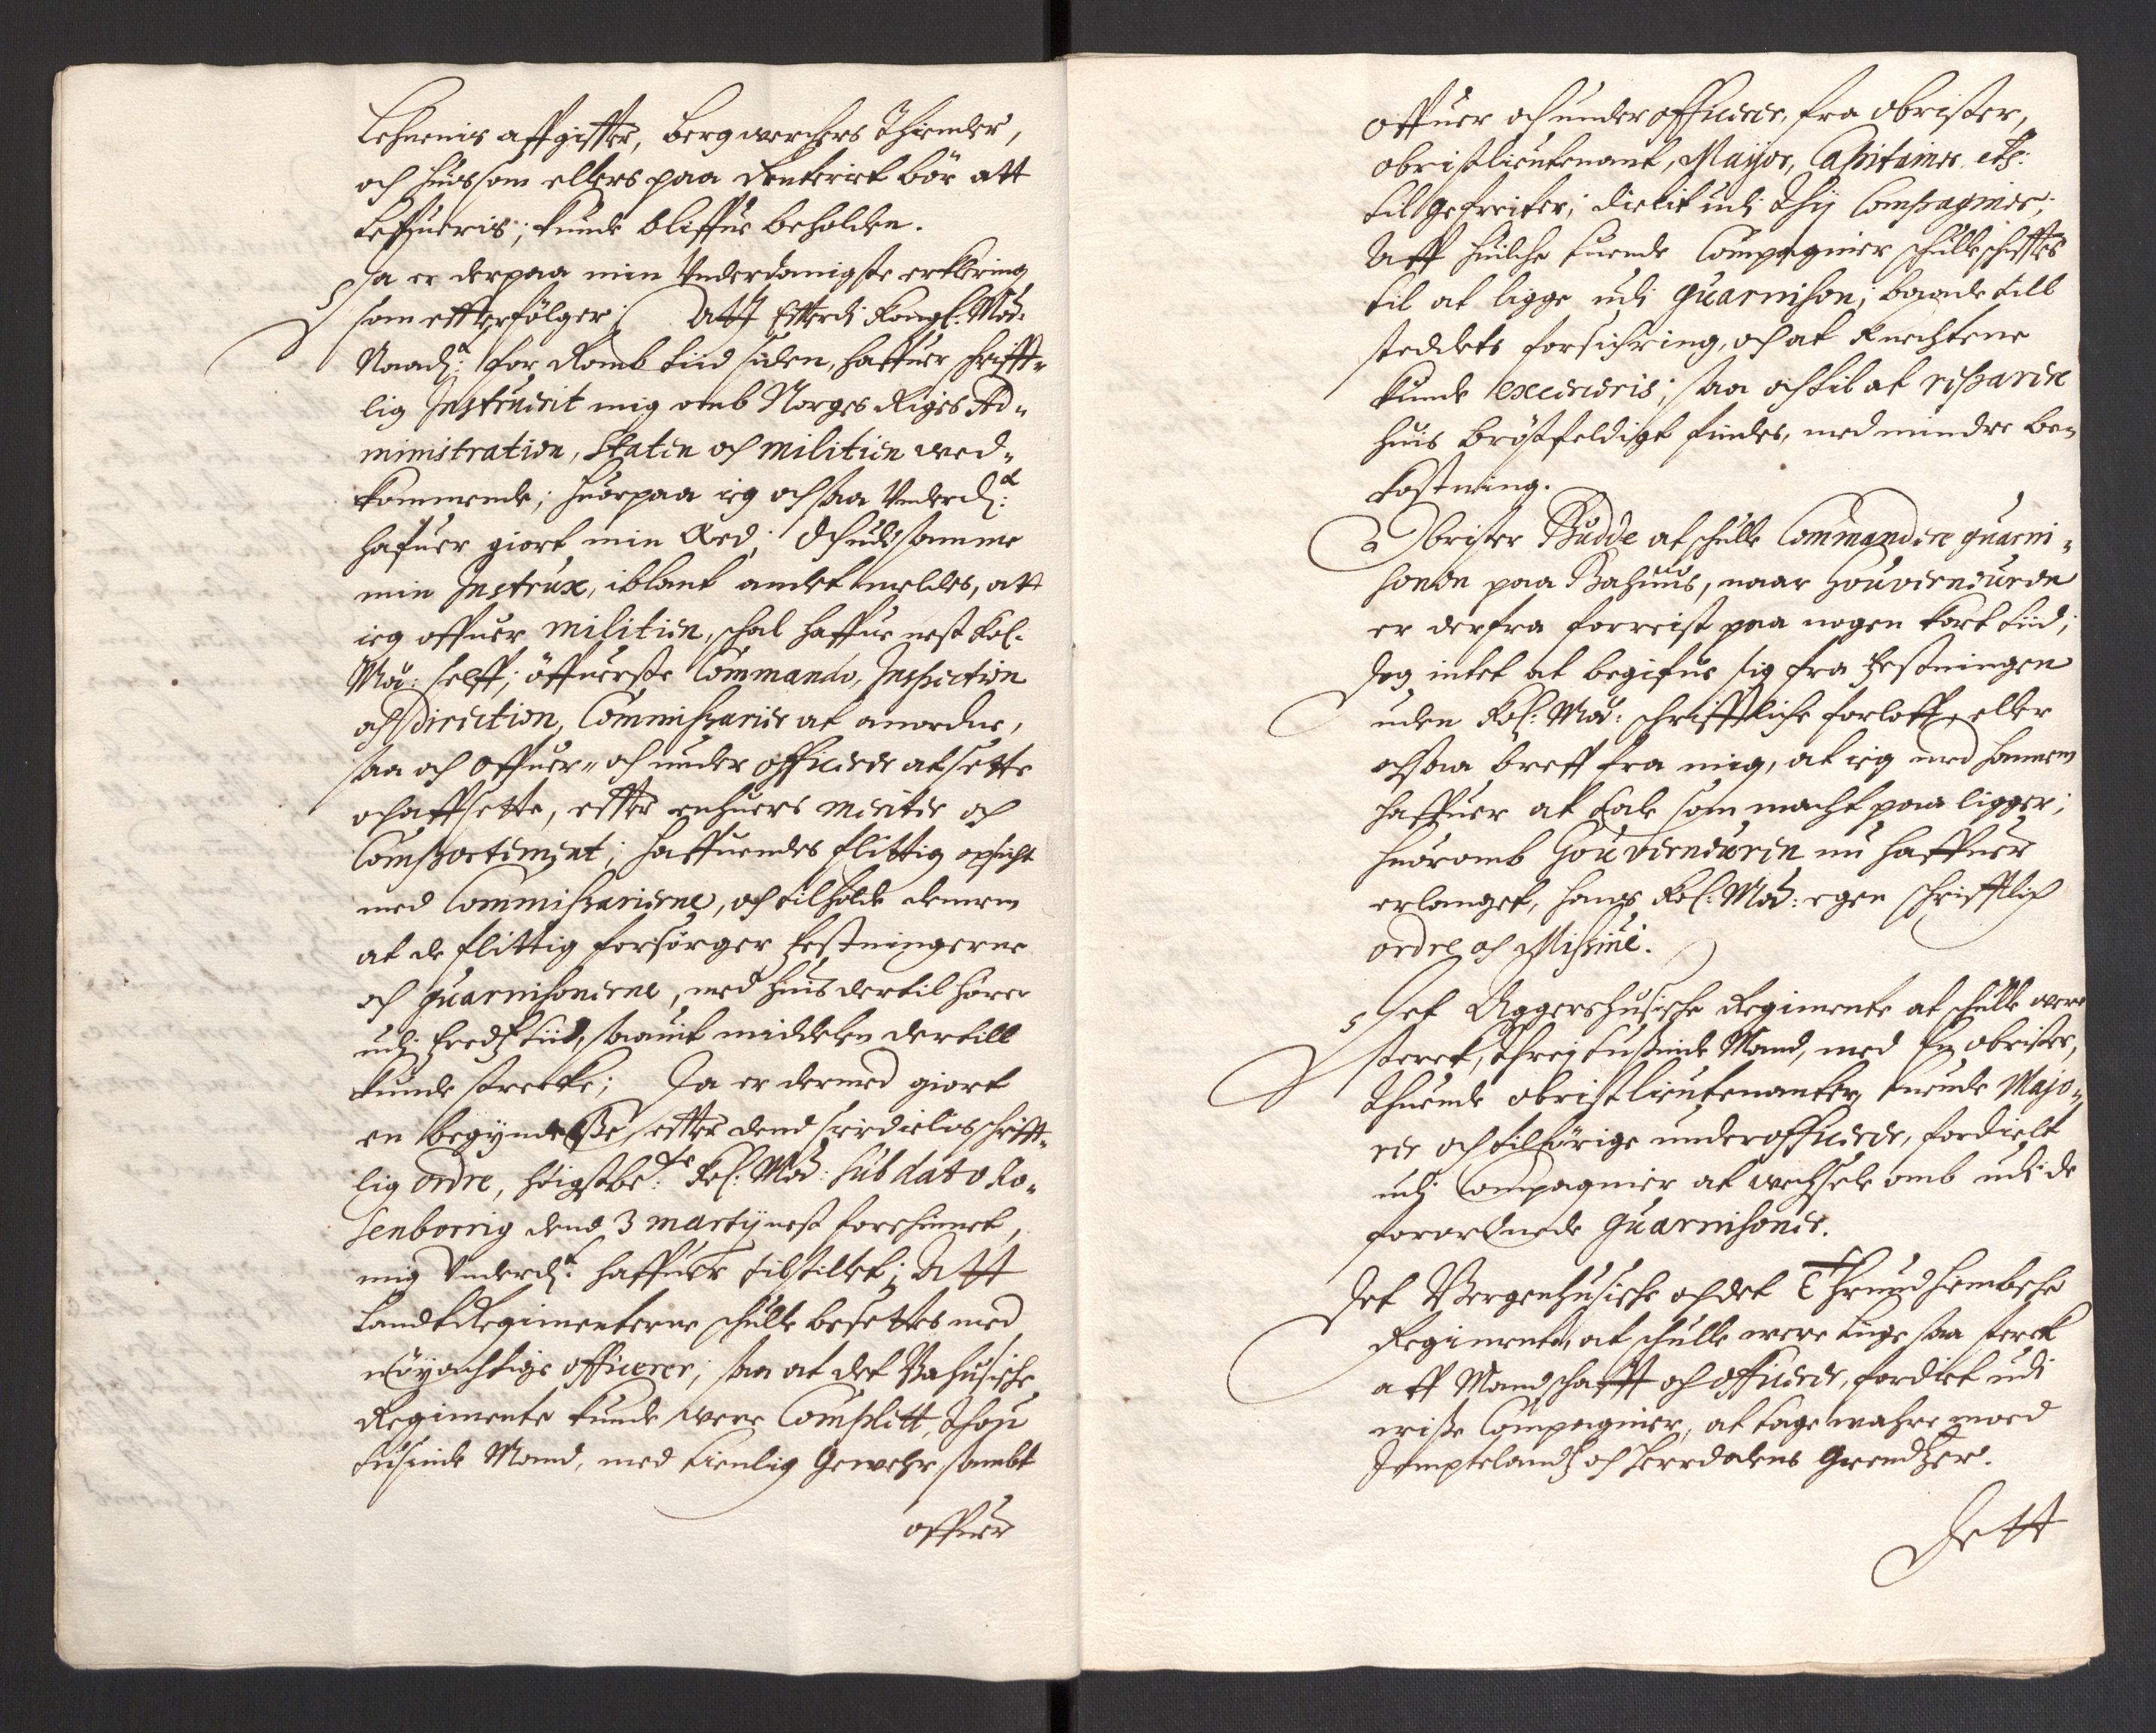 Lehnenis affgiffter, bergwerchers Thiender,
och huis som ellers paa Renteriet bör att
leffueris; kunde bliffue beholden.
Da er derpaa min Underdanigste erklering
som effterfölger: Att Efterdi Kongl: Maÿ:
Naadl: for Romb tiid siden, haffuer schrifft„
lig Instruerit mig omb Norges Riges Ad„
ministration, Staten och militien ved„
kommende; huorpaa ieg ochsaa Underd:
hafuer giort min Æed; Och udi samme
min Instrux, iblant andet meldes, att
ieg offuer militien, schal haffue nest Kol:
Maÿ: selff, öffuerste Commando, Inspection
och Direction, Commissarier at anordne,
saa och offuer„ och under officerer at sette
och affsette, effter enhuers meriter och
Comportement; haffuendes flittig opsicht
med Commissarierne, och tilholde dennem
at de flittig forsörger festningerne
och guarnisonerne, med huis dertil hörer
udj fredtz tiid, saauit middelen dertill
kunde strecke; Da er dermed giort
en begyndelsse effter dend sierdielis schrifft„
lig ordre, höigstbe:te Kol: Maÿ: sub dato Ro„
senborrig dend 3 martij nest forschinnet,
mig Underd: haffuer tilstillet; Att
Landt Regimenterne schulle besettes med
nöyachtige officerer; saa at det Bahusische
Regimente kunde were Complett, Thou
tusinde Mand, med tienlig Gewehr, sambt
offuer
offuer och under officerer, fra obrister,
obristlieutenant, Mayor, Capitainer etc:
til gefreiter; dielit udi Thij Compagnier;
Aff huilche tuende Compagnier schulle schifftes
til at ligge udi guarnison; baade till
steddets forsichring, och at Knechtene
kunde exerceris; saa och til at reparere
huis bröstfeldigt findes, med mindre be„
kostning.
Obrister Budde at schulle Commandere guarni„
sonen paa Bahuus, naar Gouverneuren
er derfra forreist paa nogen kort tiid;
Dog intet at begifue sig fra festningen
uden Kol: Maÿ: schrifftliche forloff, eller
ochsaa breff fra mig, at ieg med hannem
haffuer at tale som macht paa ligger;
huoromb Gouverneuren nu haffuer
erlanget, hans Kol: Maÿ: egen schrifftlig
ordre och Missive.
Det Aggershusische Regimente at schulle were
sterck, Threj tussinde Mand, med En obrister,
Thuende obristlieutenanter, tuende Majo„
rer och tilhörige underofficerer, fordielt
udj Compagnier at wechsele omb udi de
forordnede guarnisoner.
Det Bergenhusische och det Thrundhembsche
Regimente, at schulle were liige saa sterck
aff Mandschafft och officerer, fordielt udi
wisse Compagnier, at tage wahre moed
Jemptelandtz och Herrdalens Grendtzer.
Dett